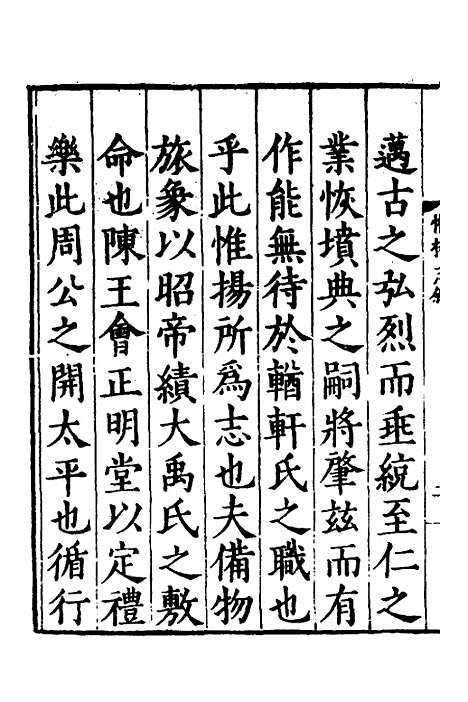 邁古之弘烈而垂統至仁之
業恢墳典之嗣將肇玆而有
作能無待於輶軒氏之職也
乎此惟揚所爲志也夫備物
旅象以昭帝績大禹氏之敷
命也陳王會正明堂以定禮
樂此周公之開太平也循行